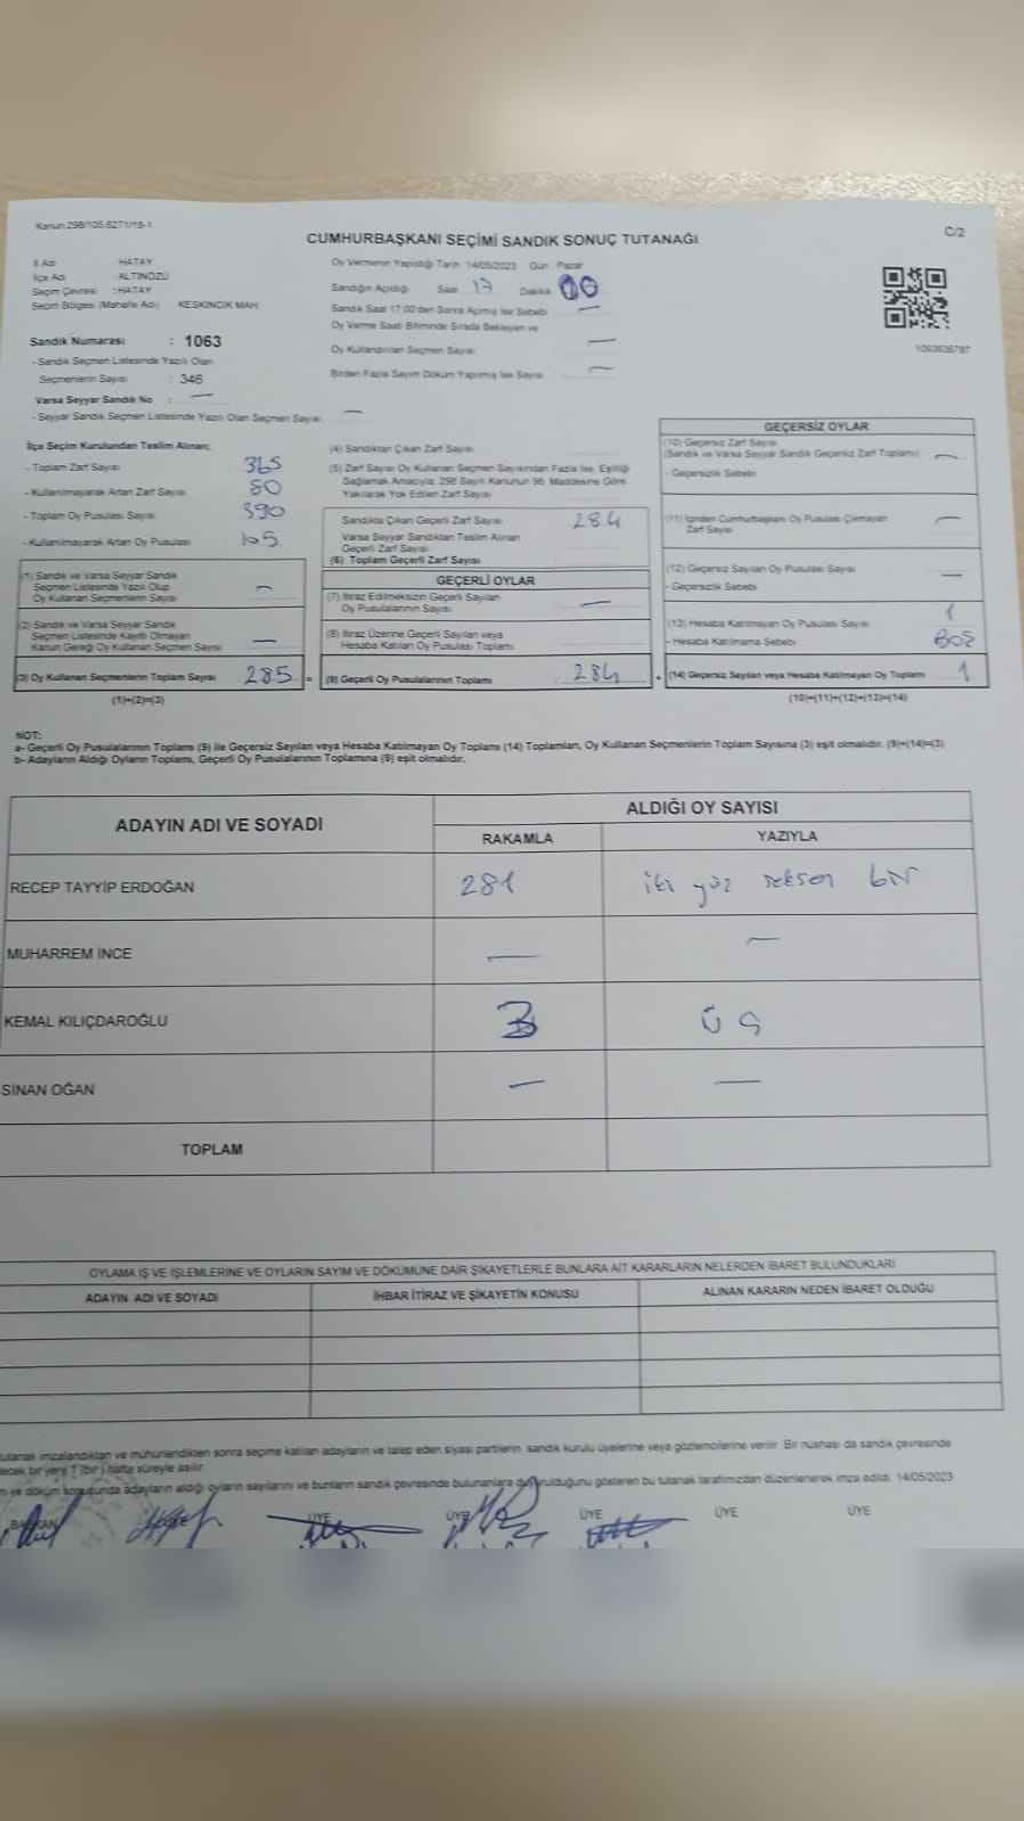 Kanun:298/105-6271/15-1
C/2
CUMHURBAŞKANI SEÇİMİ SANDIK SONUÇ TUTANAĞI
İl Adı : HATAY
İlçe Adı : ALTINÖZÜ
Seçim Çevresi : HATAY
Seçim Bölgesi (Mahalle Adı) KESKİNCİK MAH.
Sandık Numarası : 1063
- Sandık Seçmen Listesinde Yazılı Olan
Seçmenlerin Sayısı : 346
Varsa Seyyar Sandık No : —
- Seyyar Sandık Seçmen Listesinde Yazılı Olan Seçmen Sayısı —
Oy Vermenin Yapıldığı Tarih 14/05/2023 Gün Pazar
Sandığın Açıldığı Saat 17 Dakika 00
Sandık Saat 17:00'den Sonra Açılmış İse Sebebi —
Oy Verme Saati Bitiminde Sırada Bekleyen ve
Oy Kullandırılan Seçmen Sayısı —
Birden Fazla Sayım Döküm Yapılmış İse Sayısı —
İlçe Seçim Kurulundan Teslim Alınan;
- Toplam Zarf Sayısı 365
- Kullanılmayarak Artan Zarf Sayısı 80
- Toplam Oy Pusulası Sayısı 390
- Kullanılmayarak Artan Oy Pusulası 105
(1) Sandık ve Varsa Seyyar Sandık
Seçmen Listesinde Yazılı Olup
Oy Kullanan Seçmenlerin Sayısı —
(2) Sandık ve Varsa Seyyar Sandık
Seçmen Listesinde Kayıtlı Olmayan
Kanun Gereği Oy Kullanan Seçmen Sayısı —
(3) Oy Kullanan Seçmenlerin Toplam Sayısı 285 =
(1)+(2)=(3)
(4) Sandıktan Çıkan Zarf Sayısı
(5) Zarf Sayısı Oy Kullanan Seçmen Sayısından Fazla İse, Eşitliği
Sağlamak Amacıyla, 298 Sayılı Kanunun 98. Maddesine Göre
Yakılarak Yok Edilen Zarf Sayısı
Sandıkta Çıkan Geçerli Zarf Sayısı 284
Varsa Seyyar Sandıktan Teslim Alınan
Geçerli Zarf Sayısı
(6) Toplam Geçerli Zarf Sayısı
GEÇERLİ OYLAR
(7) İtiraz Edilmeksizin Geçerli Sayılan
Oy Pusulalarının Sayısı —
(8) İtiraz Üzerine Geçerli Sayılan veya
Hesaba Katılan Oy Pusulası Toplamı
(9) Geçerli Oy Pusulalarının Toplamı 284 +
GEÇERSİZ OYLAR
(10) Geçersiz Zarf Sayısı
(Sandık ve Varsa Seyyar Sandık Geçersiz Zarf Toplamı) —
- Geçersizlik Sebebi
(11) İçinden Cumhurbaşkanı Oy Pusulası Çıkmayan
Zarf Sayısı —
(12) Geçersiz Sayılan Oy Pusulası Sayısı —
- Geçersizlik Sebebi
(13) Hesaba Katılmayan Oy Pusulası Sayısı 1
- Hesaba Katılmama Sebebi BOŞ
(14) Geçersiz Sayılan veya Hesaba Katılmayan Oy Toplamı 1
(10)+(11)+(12)+(13)=(14)
NOT:
a- Geçerli Oy Pusulalarının Toplamı (9) ile Geçersiz Sayılan veya Hesaba Katılmayan Oy Toplamı (14) Toplamları, Oy Kullanan Seçmenlerin Toplam Sayısına (3) eşit olmalıdır. (9)+(14)=(3)
b- Adayların Aldığı Oyların Toplamı, Geçerli Oy Pusulalarının Toplamına (9) eşit olmalıdır.
ADAYIN ADI VE SOYADI
ALDIĞI OY SAYISI
RAKAMLA YAZIYLA
RECEP TAYYİP ERDOĞAN 281 iki yüz seksen bir
MUHARREM İNCE — —
KEMAL KILIÇDAROĞLU 3 üç
SİNAN OĞAN — —
TOPLAM
OYLAMA İŞ VE İŞLEMLERİNE VE OYLARIN SAYIM VE DÖKÜMÜNE DAİR ŞİKAYETLERLE BUNLARA AİT KARARLARIN NELERDEN İBARET BULUNDUKLARI
ADAYIN ADI VE SOYADI İHBAR İTİRAZ VE ŞİKAYETİN KONUSU ALINAN KARARIN NEDEN İBARET OLDUĞU
imzalandıktan ve mühürlendikten sonra seçime katılan adayların ve talep eden siyasi partilerin sandık kurulu üyelerine veya gözlemcilerine verilir. Bir nüshası da sandık çevresinde
bir yere 1 (bir) hafta süreyle asılır.
ve döküm sonucunda adayların aldığı oyların sayılarını ve bunların sandık çevresinde bulunanlara duyurulduğunu gösteren bu tutanak tarafımızdan düzenlenerek imza edildi. 14/05/2023
BAŞKAN ÜYE ÜYE ÜYE ÜYE ÜYE